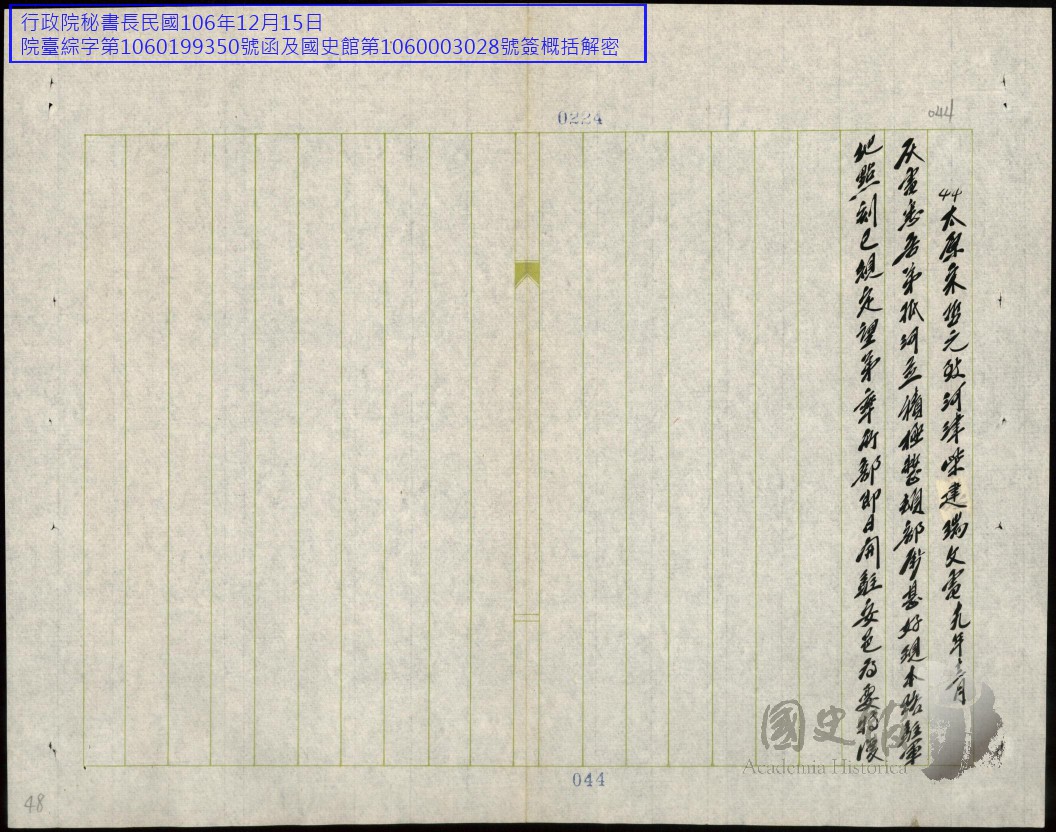 行政院秘書長民國106年12月15日
院臺綜字第1060199350號函及國史館第1060003028號簽概括解密
0224
044
44太原宋哲元致河津柴建瑞文電九年三月
灰電悉吾弟抵河並積極整頓部屬甚好現本路駐軍
地點刻已規定望弟率所部即日開駐安邑為要特復
國史館
Academia Historica
044
48